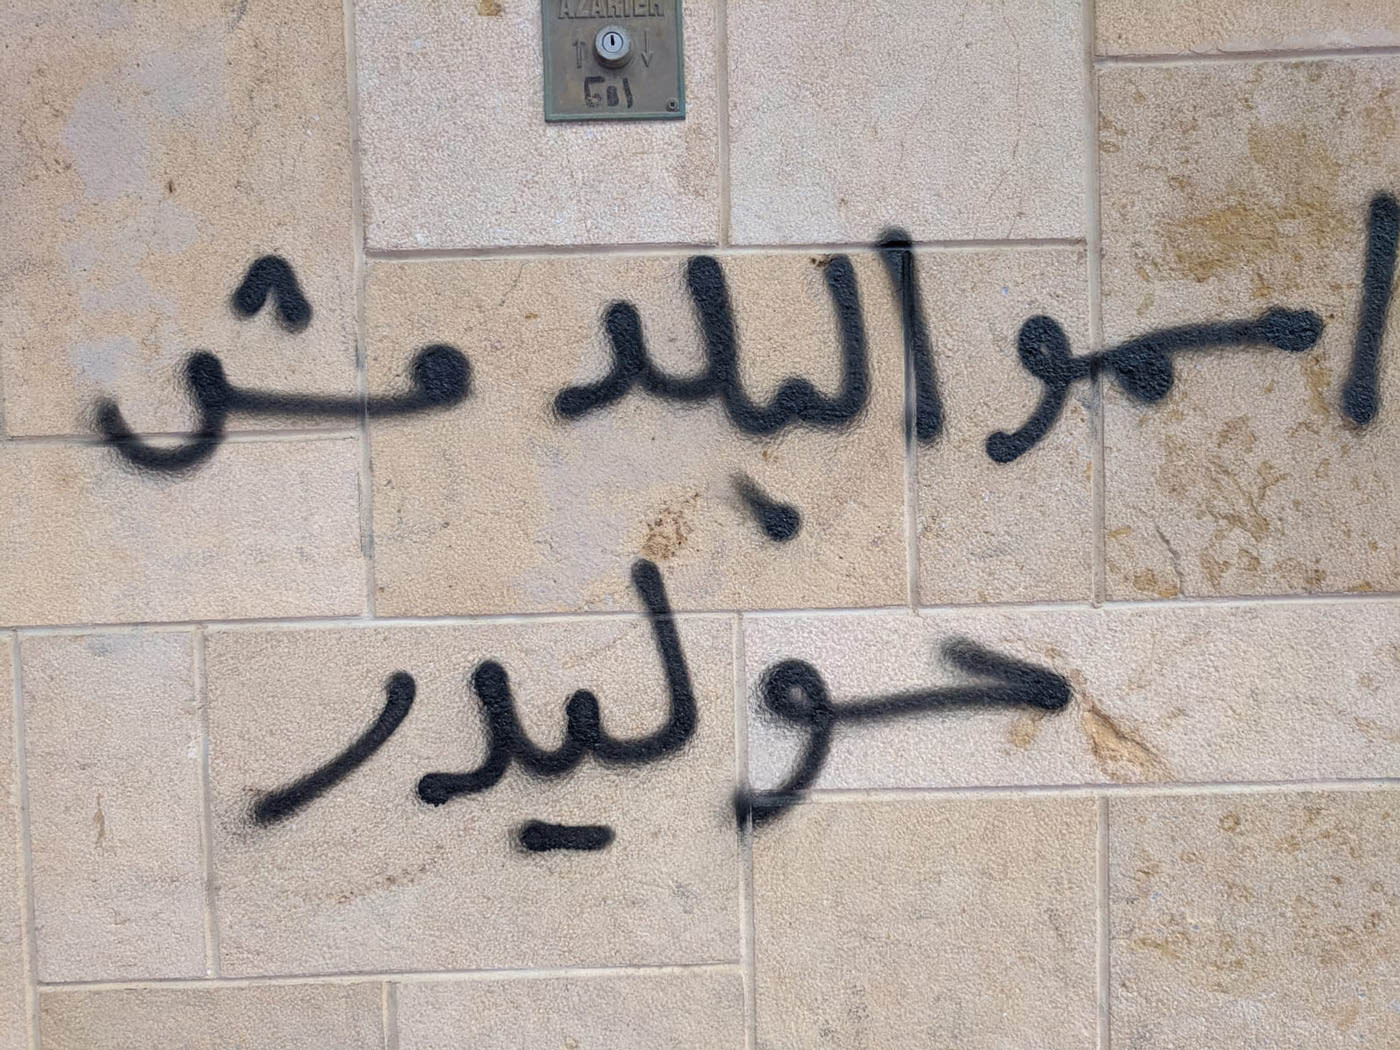 AZARIEH
Gsl
اسمو البلد مش
حوليدر